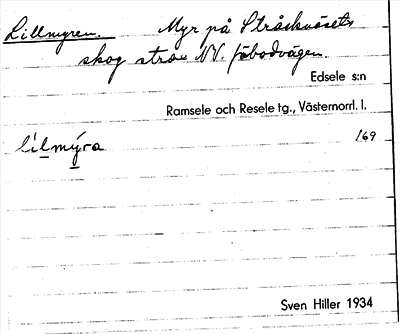 Lillmyren. Myr på Stråknäsets
skog strax NV. fäbodvägen.
Edsele s:n
Ramsele och Resele tg., Västernorrl. l.
lìlmýra 169
Sven Hiller 1934